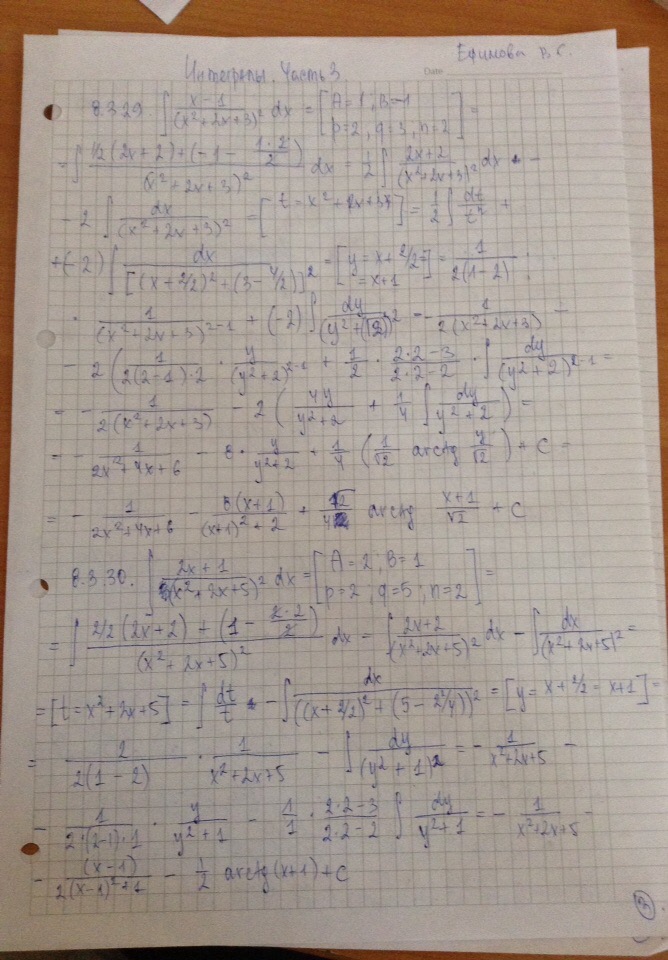 Ефимова В.С.
Интегралы. Часть 3
8.3.29. ∫ (x-1)/(x²+2x+3)² dx = [A=1; B=-1 p=2, q=3, n=2] =
= ∫ (1/2 (2x+2) + (-1 - 1·2/2))/(x²+2x+3)² dx = 1/2 ∫ (2x+2)/(x²+2x+3)² dx -
- 2 ∫ dx/(x²+2x+3)² = [t = x²+2x+3] = 1/2 ∫ dt/t² +
+ (-2) ∫ dx/[(x+2/2)² + (3-4/2)]² = [y = x+2/2 = x+1] = 1/(2(1-2)) ·
· 1/(x²+2x+3)^(2-1) + (-2) ∫ dy/(y²+(√2)²)² = - 1/(2(x²+2x+3)) -
- 2 (1/(2(2-1)·2) · y/(y²+2)^(2-1) + 1/2 · (2·2-3)/(2·2-2) · ∫ dy/(y²+2)^(2-1) =
= - 1/(2(x²+2x+3)) - 2 (4y/(y²+2) + 1/4 ∫ dy/(y²+2)) =
= - 1/(2x²+4x+6) - 8 · y/(y²+2) + 1/4 (1/√2 arctg y/√2) + C =
= - 1/(2x²+4x+6) - 8(x+1)/((x+1)²+2) + √2/42 arctg (x+1)/√2 + C
8.3.30. ∫ (2x+1)/(x²+2x+5)² dx = [A=2, B=1 p=2, q=5, n=2] =
= ∫ (2/2 (2x+2) + (1 - 2·2/2))/(x²+2x+5)² dx = ∫ (2x+2)/(x²+2x+5)² dx - ∫ dx/(x²+2x+5)² =
= [t = x²+2x+5] = ∫ dt/t - ∫ dx/((x+2/2)² + (5-2²/4))² = [y = x+2/2 = x+1] =
= 2/(2(1-2)) · 1/(x²+2x+5) - ∫ dy/(y²+1)² = - 1/(x²+2x+5) -
- 1/(2·(2-1)·1) · y/(y²+1) - 1/1 · (2·2-3)/(2·2-2) ∫ dy/(y²+1) = - 1/(x²+2x+5) -
- (x-1)/(2(x-1)²+1) - 1/2 arctg (x+1) + C
3